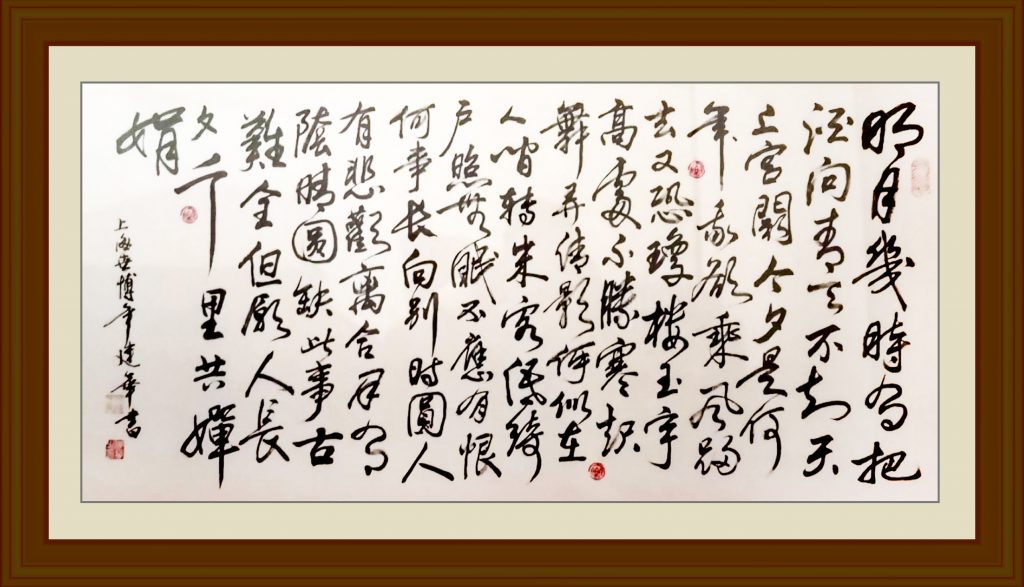 明月幾時有把
酒问青天不知天
上宫闕今夕是何
年我欲乘风歸
去又恐瓊楼玉宇
高處不勝寒起
舞弄清影何似在
人间轉朱阁低绮
户照無眠不應有恨
何事长向别时圓人
有悲歡离合月有
陰晴圆缺此事古
難全但願人長
久千里共嬋
娟
上海世博年 華書